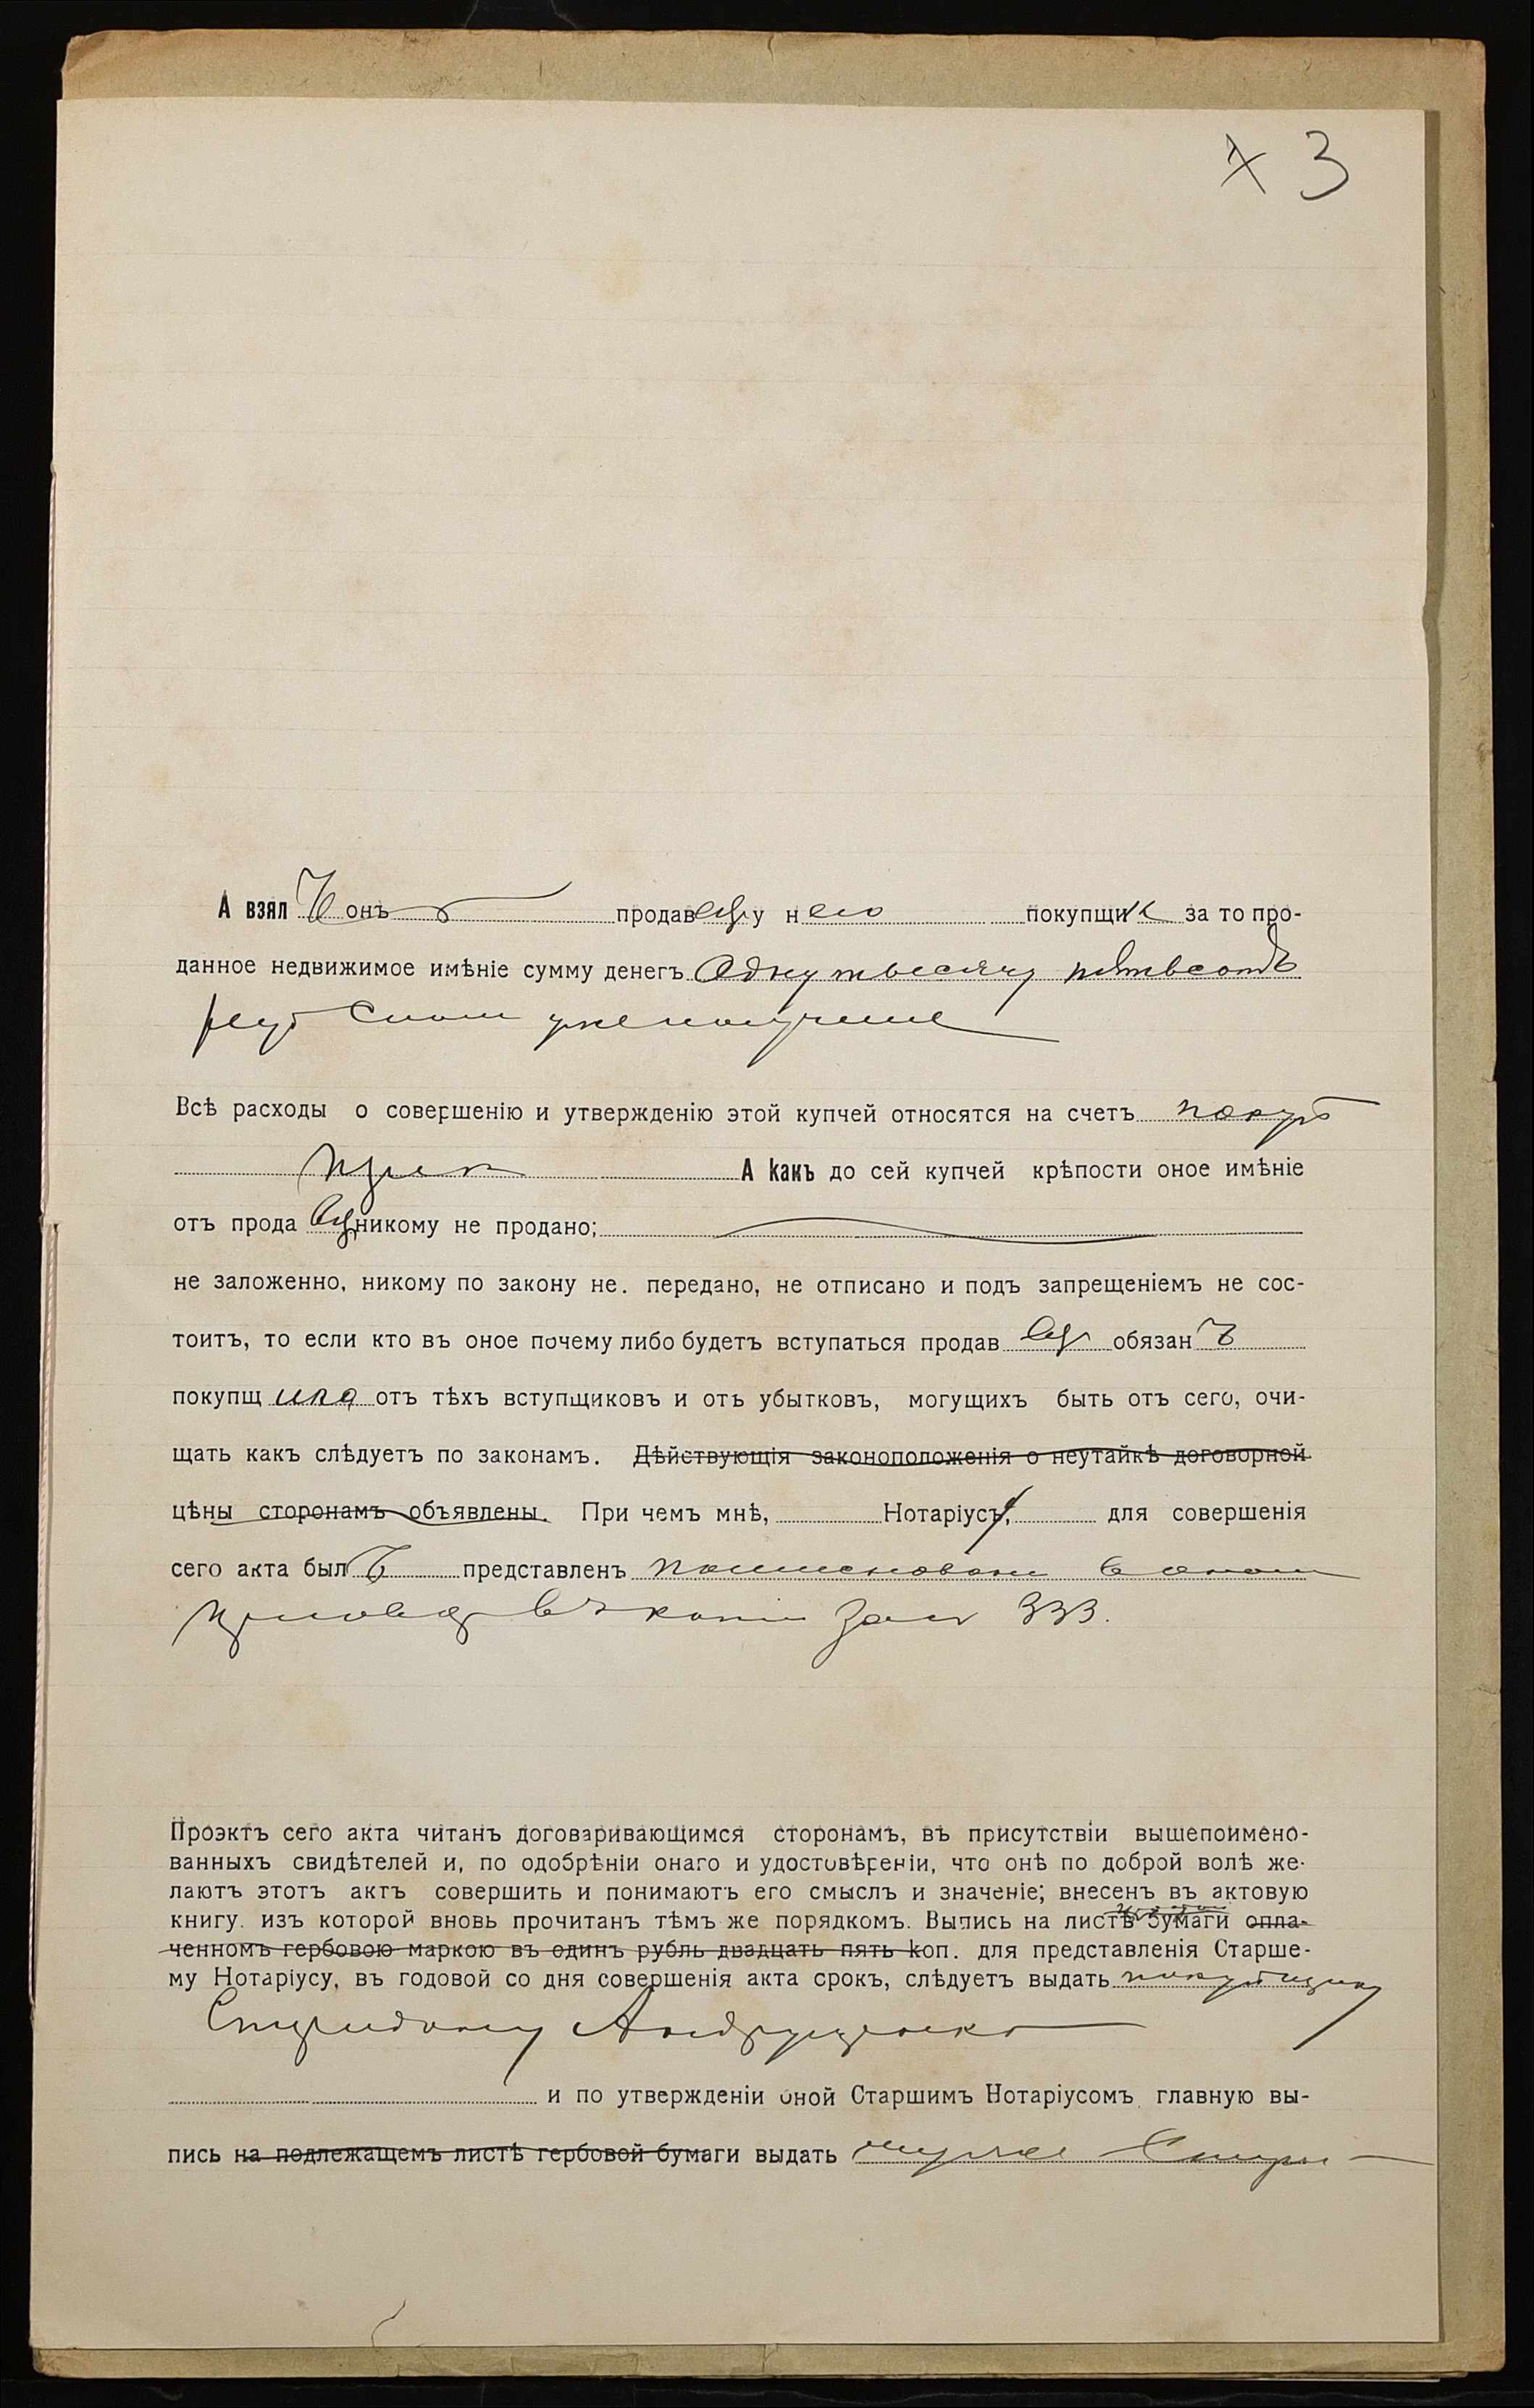 3
А взялъ онъ продавецъ у него покупщик за то про-
данное недвижимое имѣніе сумму денегъ Одну тысячу пятьсотъ
руб
Всѣ расходы о совершенію и утвержденію этой купчей относятся на счетъ покуп
щика А какъ до сей купчей крѣпости оное имѣніе
отъ прода вца никому не продано;
не заложенно, никому по закону не. передано, не отписано и подъ запрещеніемъ не сос-
тоитъ, то если кто въ оное почему либо будетъ вступаться продав ецъ обязан ъ
покупщ ика отъ тѣхъ вступщиковъ и отъ убытковъ, могущихъ быть отъ сего, очи-
щать какъ слѣдуетъ по законамъ. Дѣйствующія законоположенія о неутайкѣ договорной
цѣны сторонамъ объявлены. При чемъ мнѣ, Нотаріусу, для совершенія
сего акта былъ представленъ поименован в
въ копіи 333.
Проэктъ сего акта читанъ договаривающимся сторонамъ, въ присутствіи вышепоимено-
ванныхъ свидѣтелей и, по одобрѣніи онаго и удостовѣреніи, что онѣ по доброй волѣ же-
лаютъ этотъ актъ совершить и понимаютъ его смыслъ и значеніе; внесенъ въ актовую
книгу. изъ которой вновь прочитанъ тѣмъ же порядкомъ. Выпись на листѣ бумаги опла-
ченномъ гербовою маркою въ одинъ рубль двадцать пять коп. для представленія Старше-
му Нотаріусу, въ годовой со дня совершенія акта срокъ, слѣдуетъ выдать покупщику
Спиридону Андрущенко
и по утвержденіи оной Старшимъ Нотаріусомъ главную вы-
пись на подлежащемъ листѣ гербовой бумаги выдать Спири